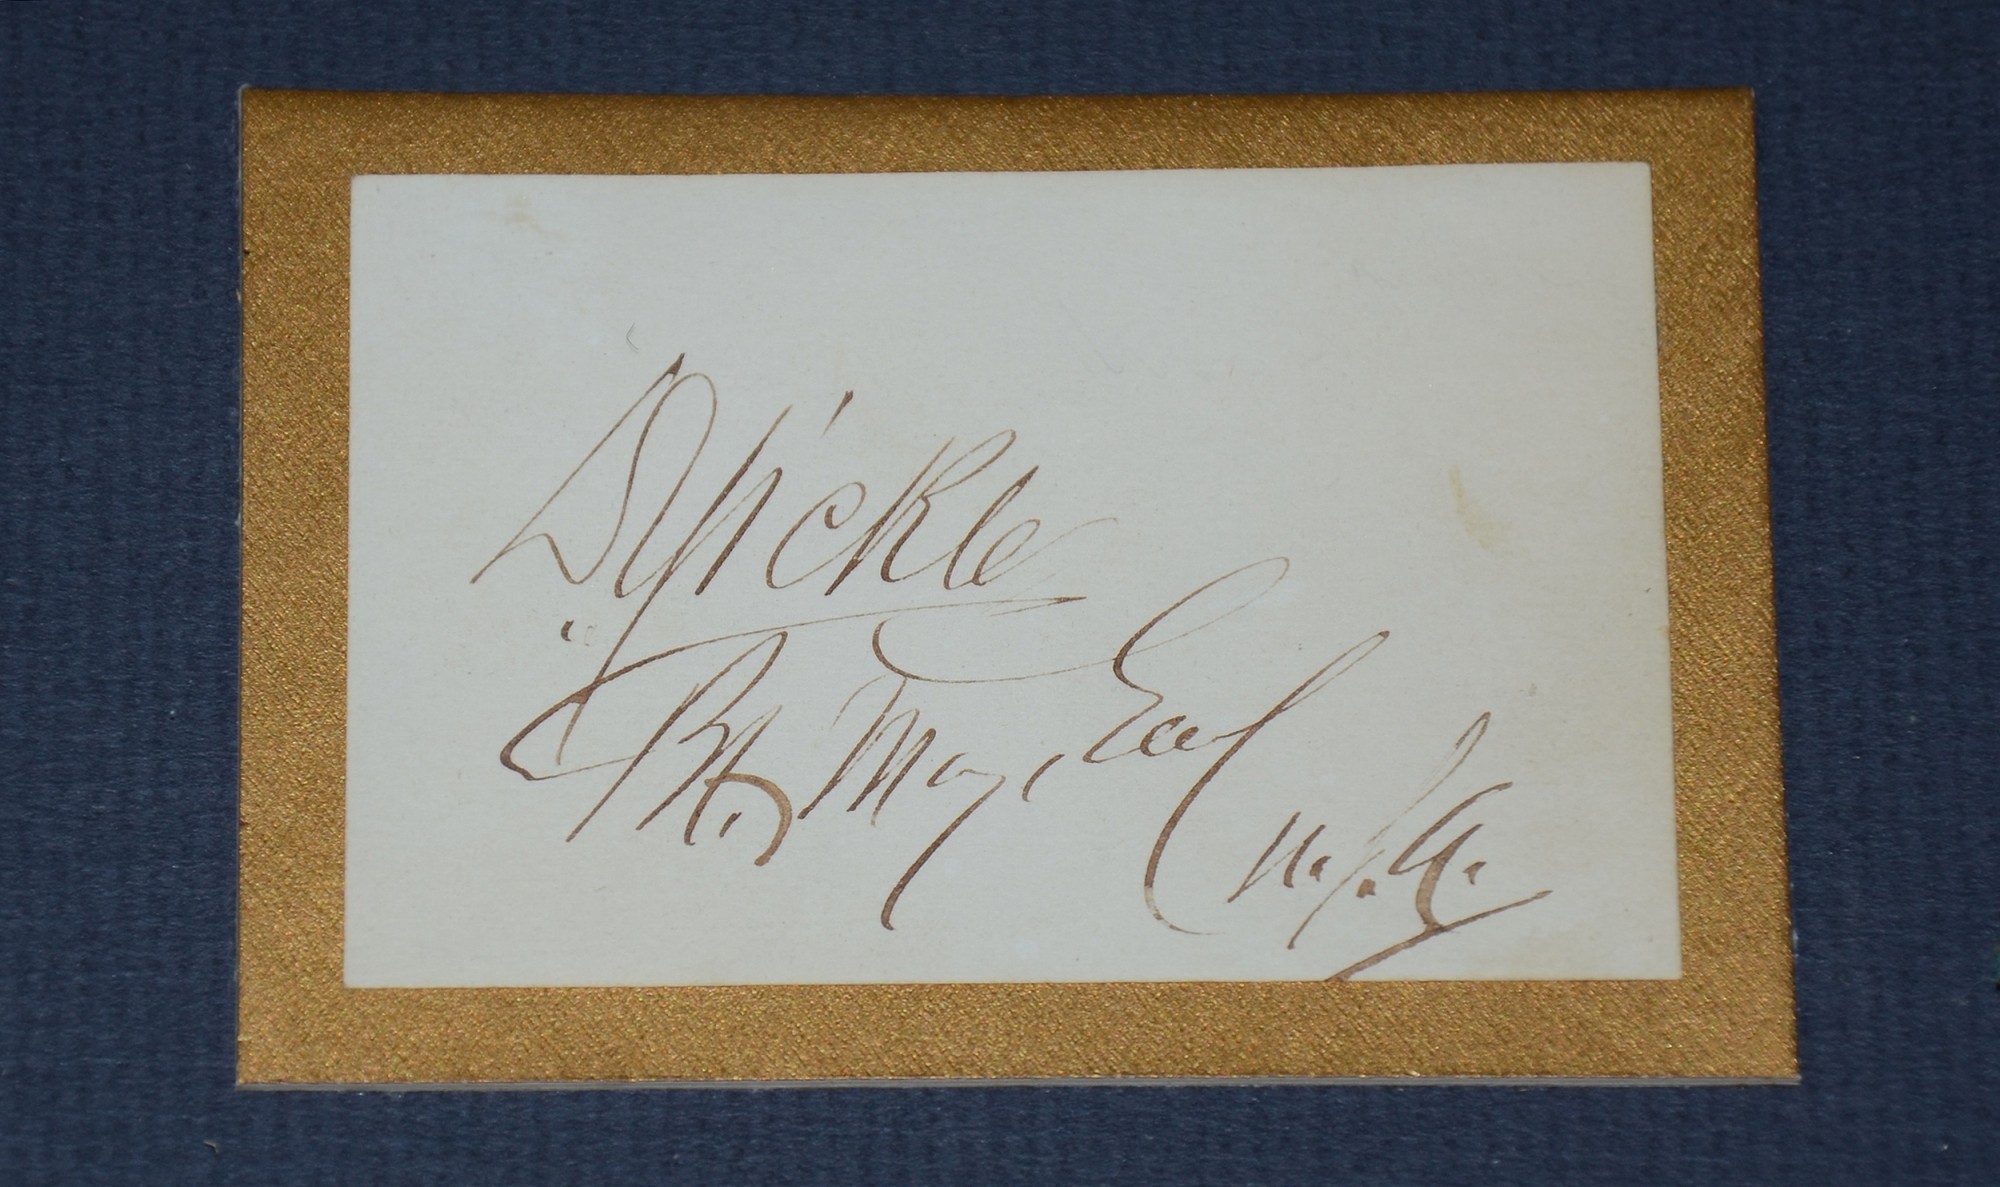 D Sickles
Bt. Maj. Genl
U.S.A.